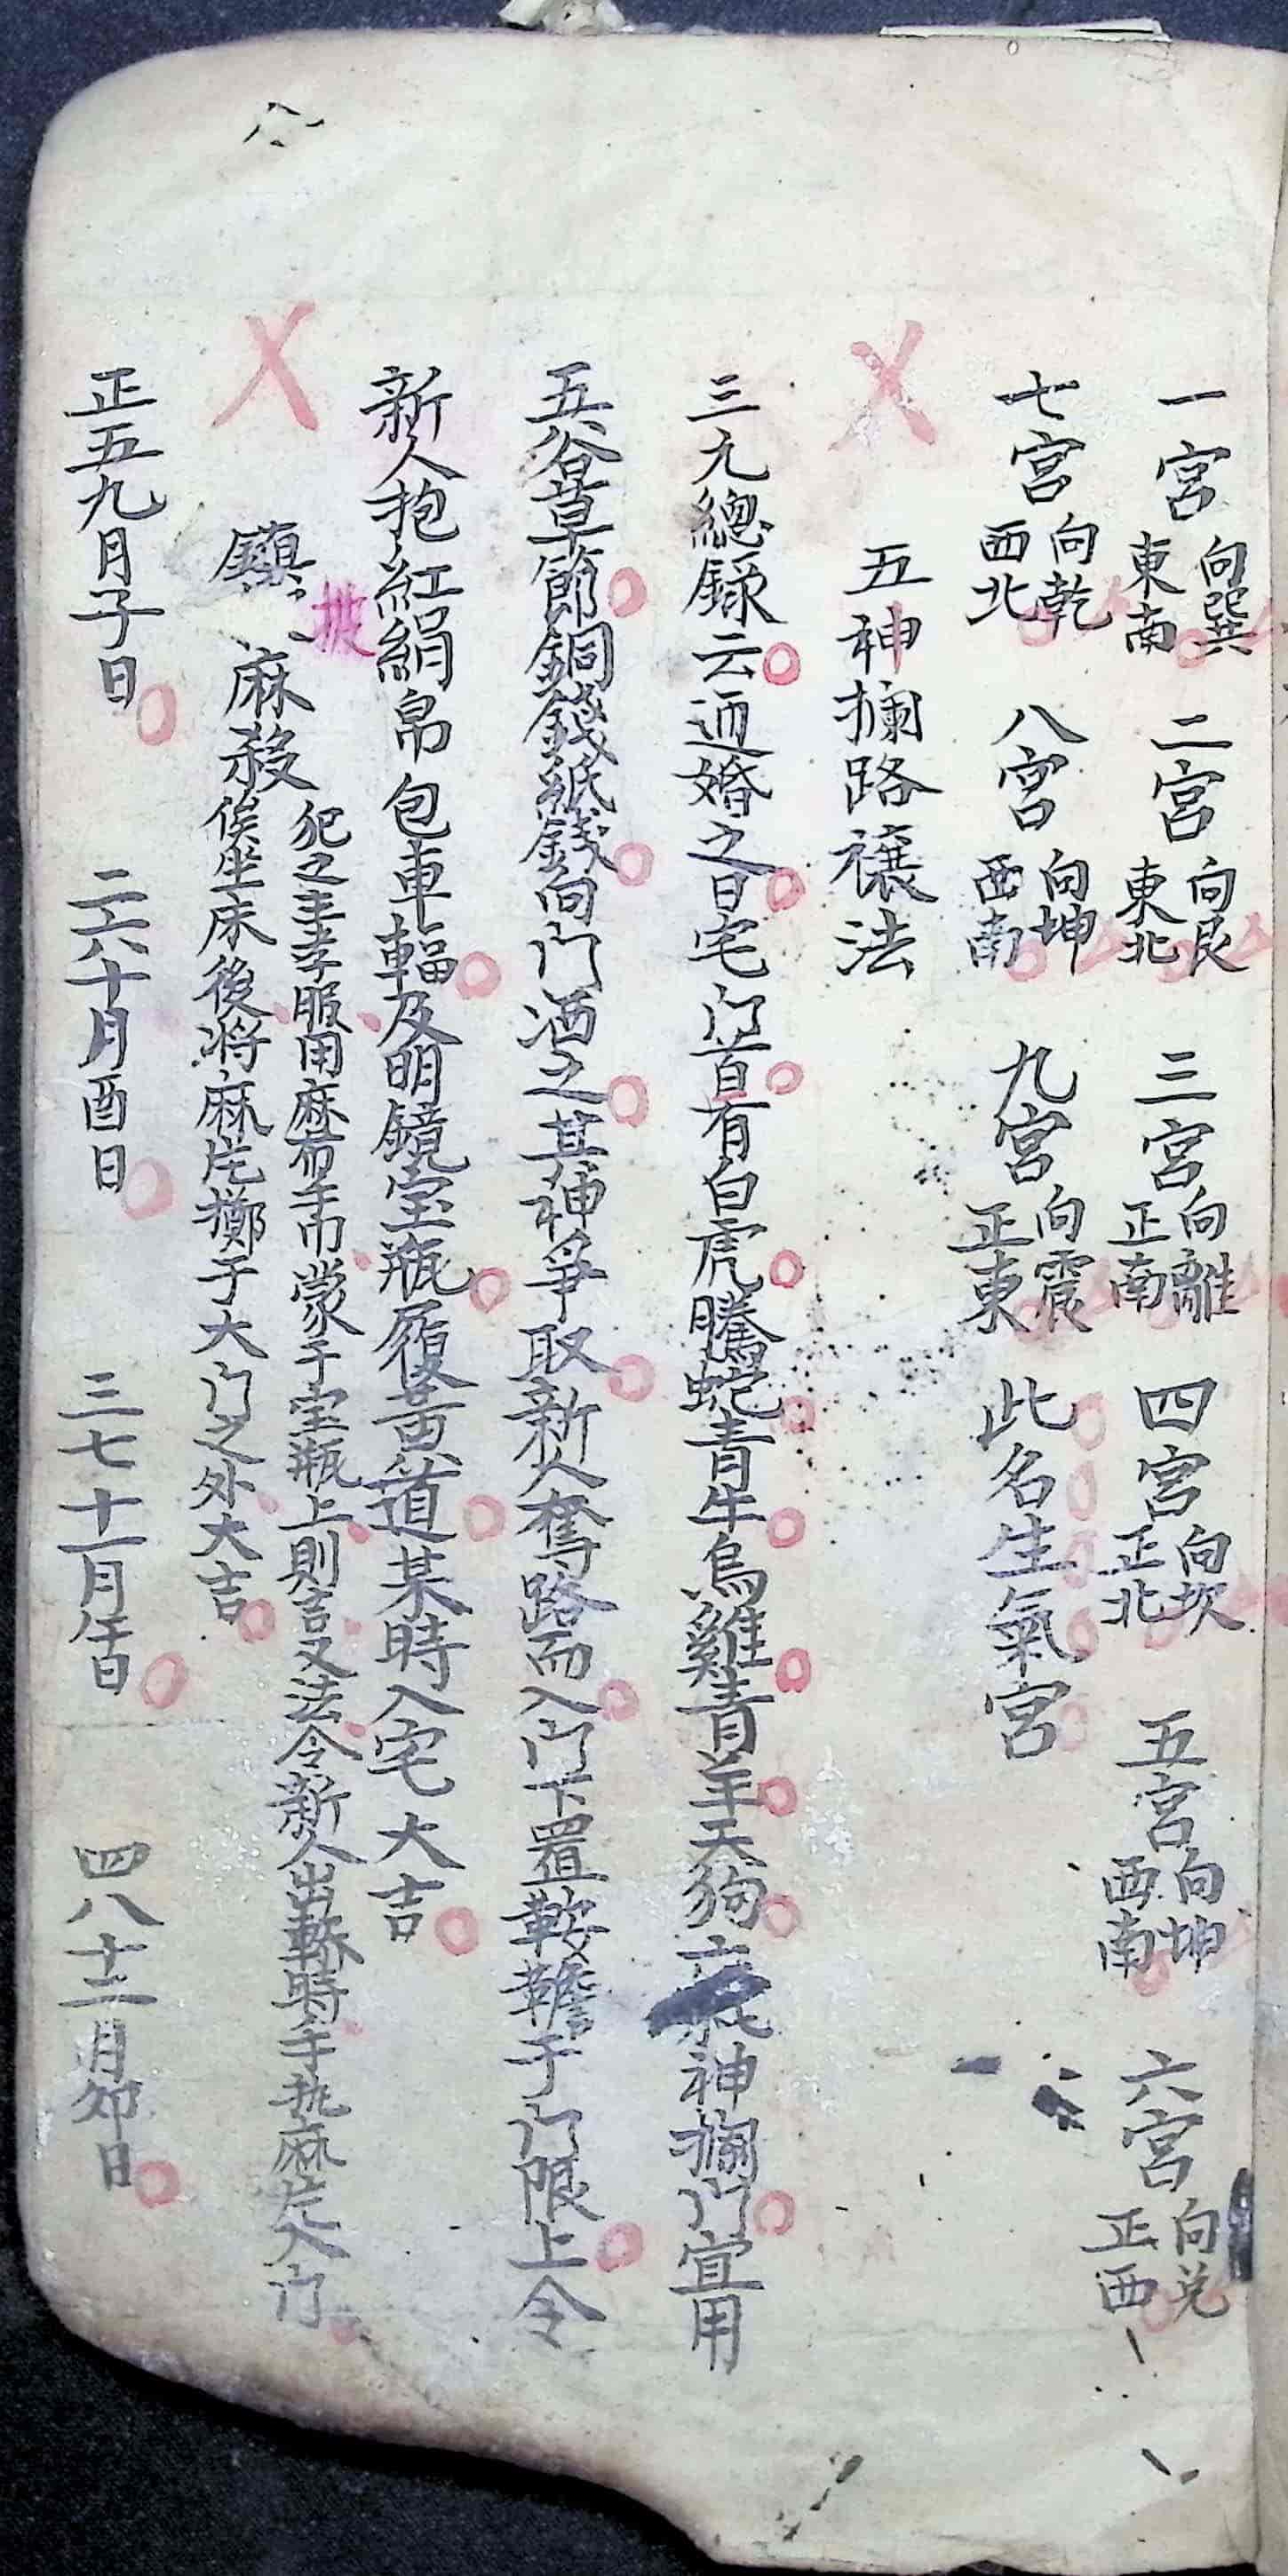 一宮向巽東南 二宮向艮東北 三宮向離正南 四宮向坎正北 五宮向坤西南 六宮向兌正西
七宮向乾西北 八宮向坤西南 九宮向震正東 此名生氣宮
五神攔路禳法
三九總錄云迺婚之日宅门首有白虎騰蛇青牛烏雞青羊天狗神攔门宜用
五谷草節銅錢紙錢向门洒之其神爭取新人奪路而入门下置鞍韂于门限上令
新人抱紅絹帛包車輻及明鏡宝瓶履黃道某時入宅大吉
鎮披麻殺
犯之主孝服用麻布手巾蒙于宝瓶上則吉又法令新人出轎時手执麻庀入门
俟坐床後將麻庀擲于大门之外大吉
正五九月子日 二六十月酉日 三七十一月午日 四八十二月卯日